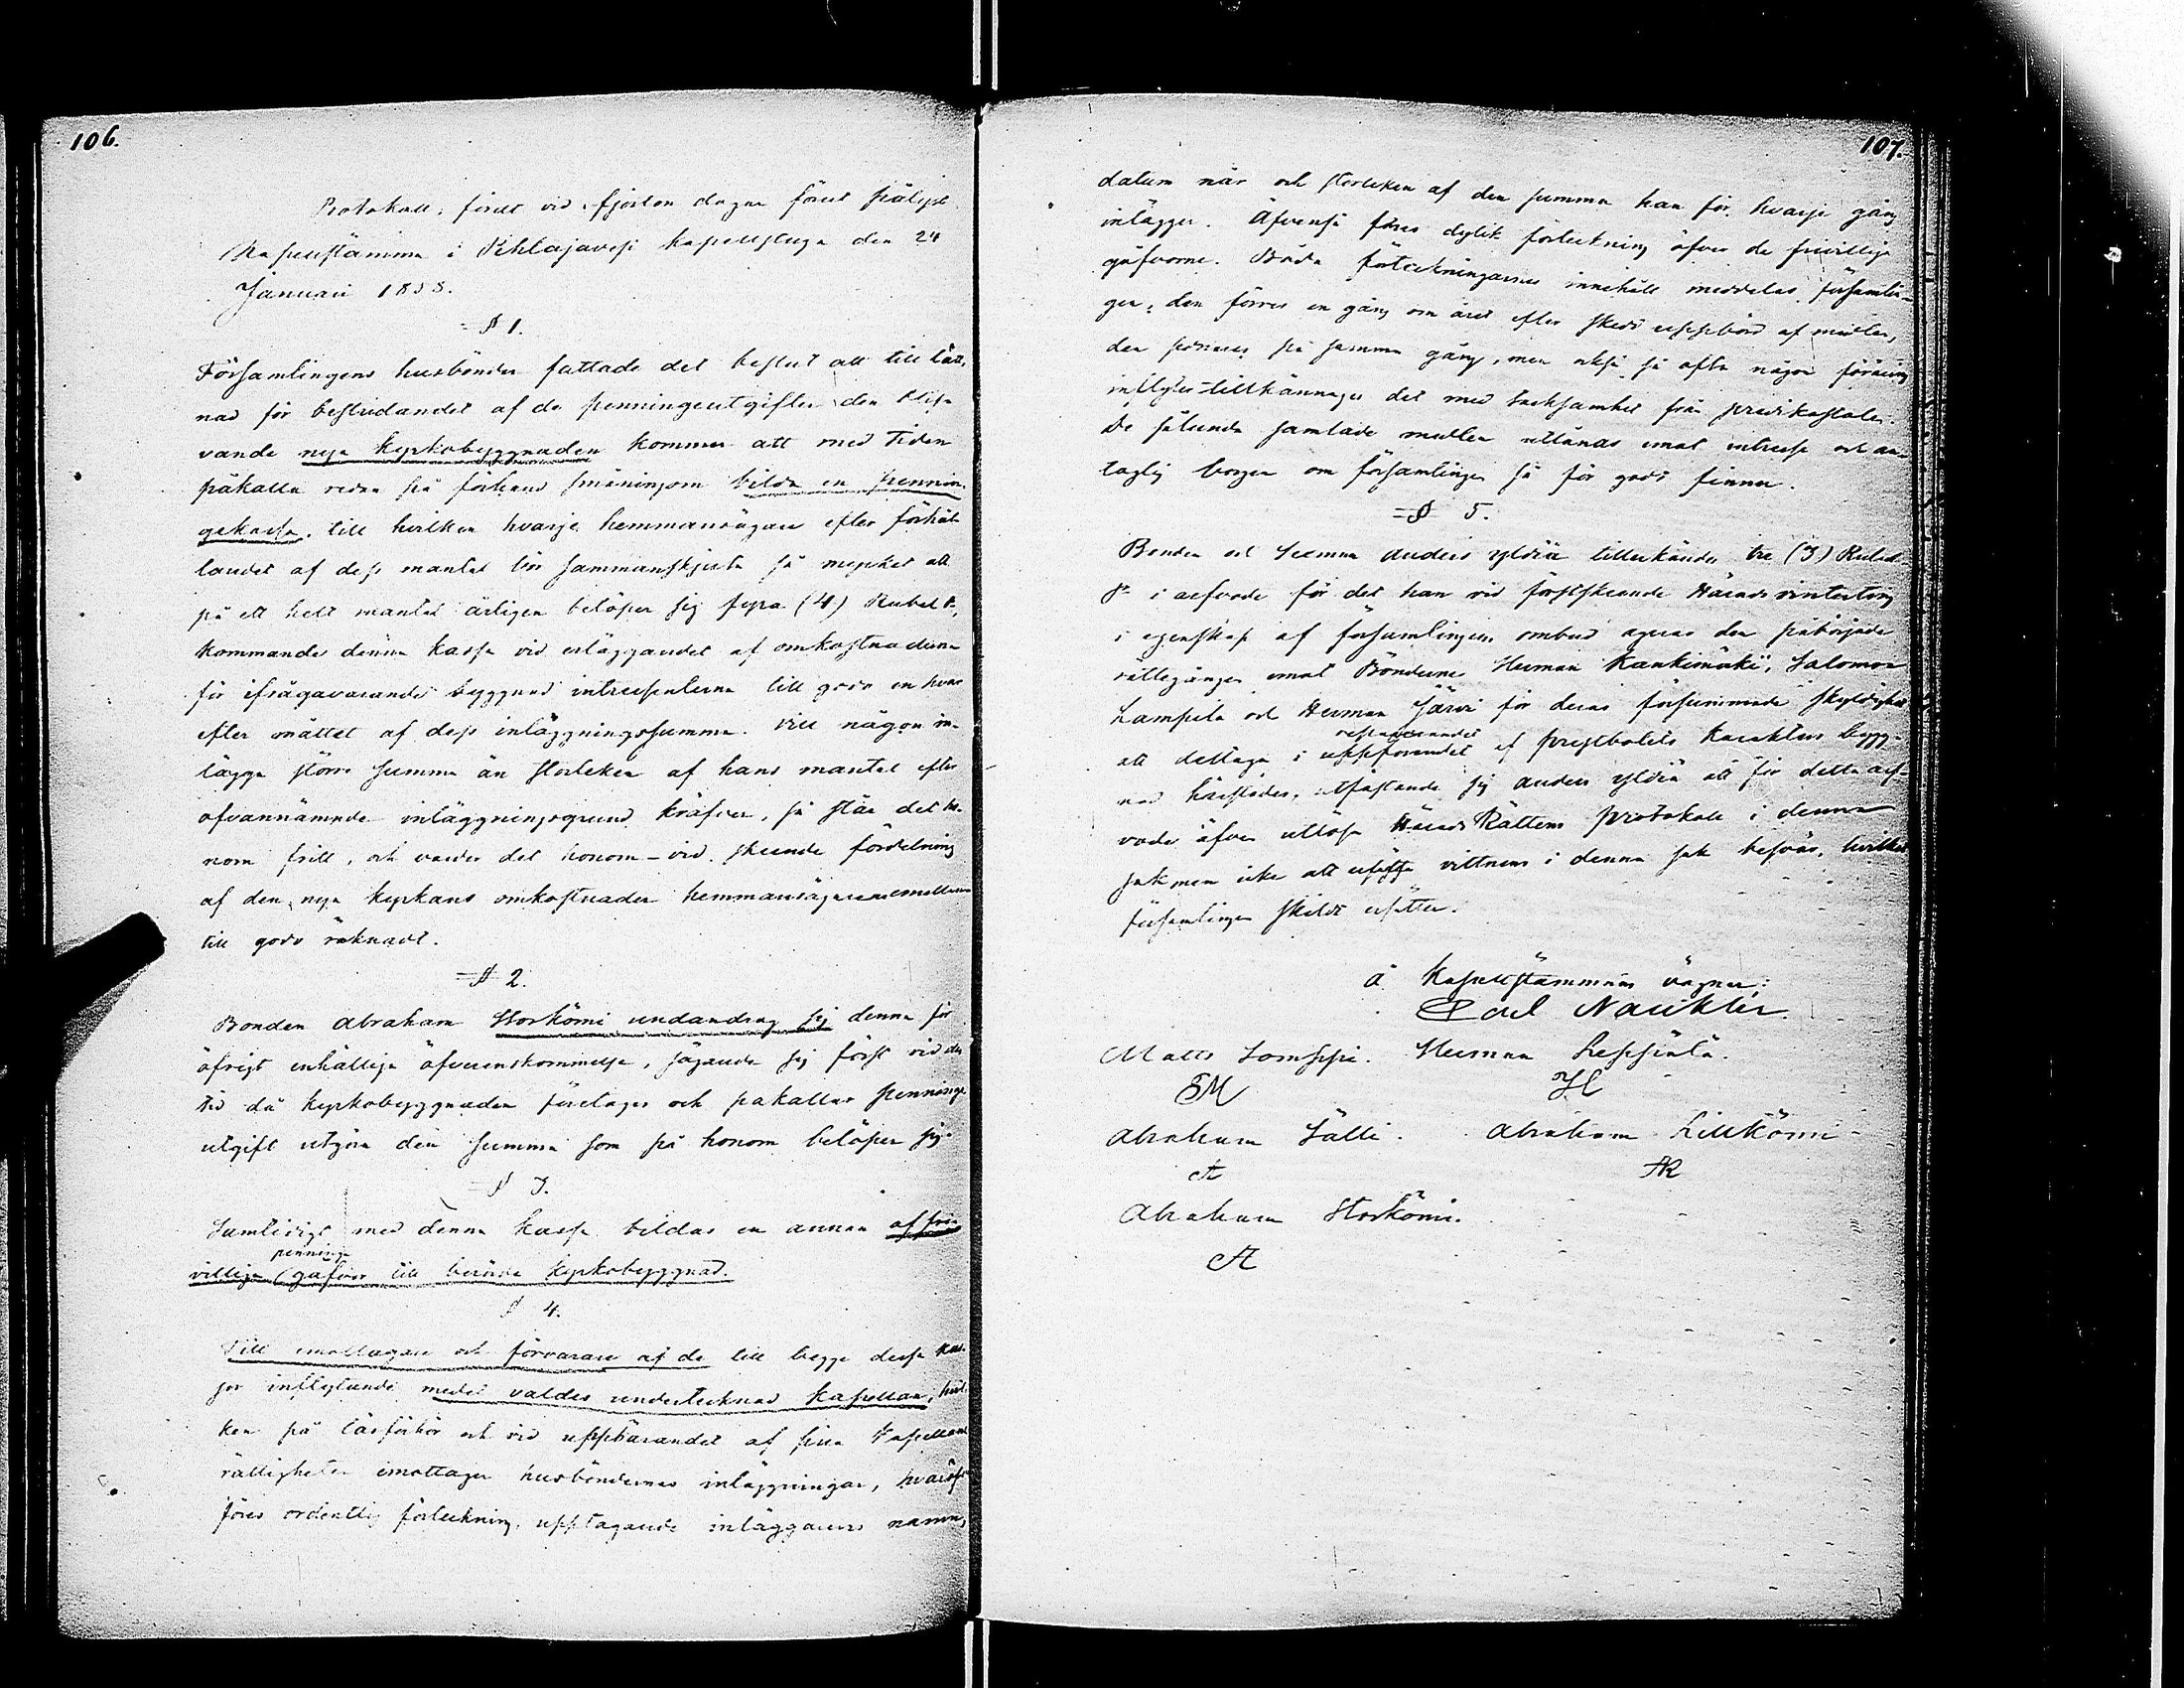 106.
Protokoll, fördt vid fjorton dagar förut pålyst
Kapellstämma i Pihlajavesi kapellstuga den 24
Januari 1858.
§ 1.
Församlingens husbönder fattade det beslut att till lätt-
nad för bestridandet af de penningeutgifter den blif-
vande nya kyrkobyggnaden kommer att med tiden
påkalla redan på förhand småningom bilda en pennin-
gekassa, till hvilken hvarje hemmansägare efter förhål-
landet af dess mantal bör sammanskjuta så mycket att
på ett helt mantal årligen belöper sig fyra (4) Rubel Sr,
kommandes denna kassa vid erläggandet af omkostnaderna
för ifrågavarande byggnad intressenterna till godo en hvar
efter måttet af dess inläggningssumma. Vill någon in-
lägga större summa än storleken af hans mantal efter
ofvannämnde inläggningsgrund kräfver, så står det ho-
nom fritt, och varder det honom vid skeende fördelning
af den nya kyrkans omkostnader hemmansägarene emellan
till godo räknadt.
§ 2.
Bonden Abraham Storkömi undandrag sig denna för
öfrigt enhälliga öfverenskommelse, sägande sig först vid den
tid då kyrkobyggnaden företages och påkallar penninge
utgift utgöra den summa som på honom belöper sig.
§ 3.
Samtidigt med denna kassa bildas en annan af fri-
penninge
villiga gåfvor till berörde kyrkobyggnad.
§ 4.
Till emottagare och förvarare af de till begge dessa kas-
sor inflytande medel valdes undertecknad kapellan, hvil-
ken på läsförhör och vid uppbärandet af sina Kapellans
rättigheter emottager husböndernas inläggningar, hvaröfver
föres ordentlig förteckning, upptagande inläggarens namn,
107.
datum när och storleken af den summa han för hvarje gång
inlägger. Äfvenså föres dylik förteckning öfver de frivilliga
gåfvorne. Båda förteckningarnes innehåll meddelas församlin-
gen, den förres en gång om året efter skedd uppbörd af medlen,
den sednares på samma gång, men också så ofta någon föräring
inflyter tillkännages det med tacksamhet från predikostolen.
De sålunda samlade medlen utlånas emot intresse och an-
taglig borgen om församlingen så för godt finner.
§ 5.
Bonden och Sexman Anders Yldiä tillerkändes tre (3) Rubel
Sr i arfvode för det han vid förstskeende Härads vinterting
i egenskap af församlingens ombud agerar den påbörjade
rättegången emot Bönderne Herman Kaukimäki, Salomon
Lampila och Herman Järvi för deras försummade skyldighet
att deltaga i uppförandet af prestbolets karaktärs bygg-
nad härstädes, utfästande sig Anders Yldiä att för detta arf-
vode äfven utlösa HäradsRättens protokoll i denna
sak men icke att ersätta vittnens i denna sak besvär, hvilket
församlingen skildt ersätter.
Å Kapellstämmans vägnar:
Carl Nauklér.
Matts Lamppi. Herman Leppälä.
M H
Abraham Sälli. Abraham Lillkömi
A AK
Abraham Storkömi.
A